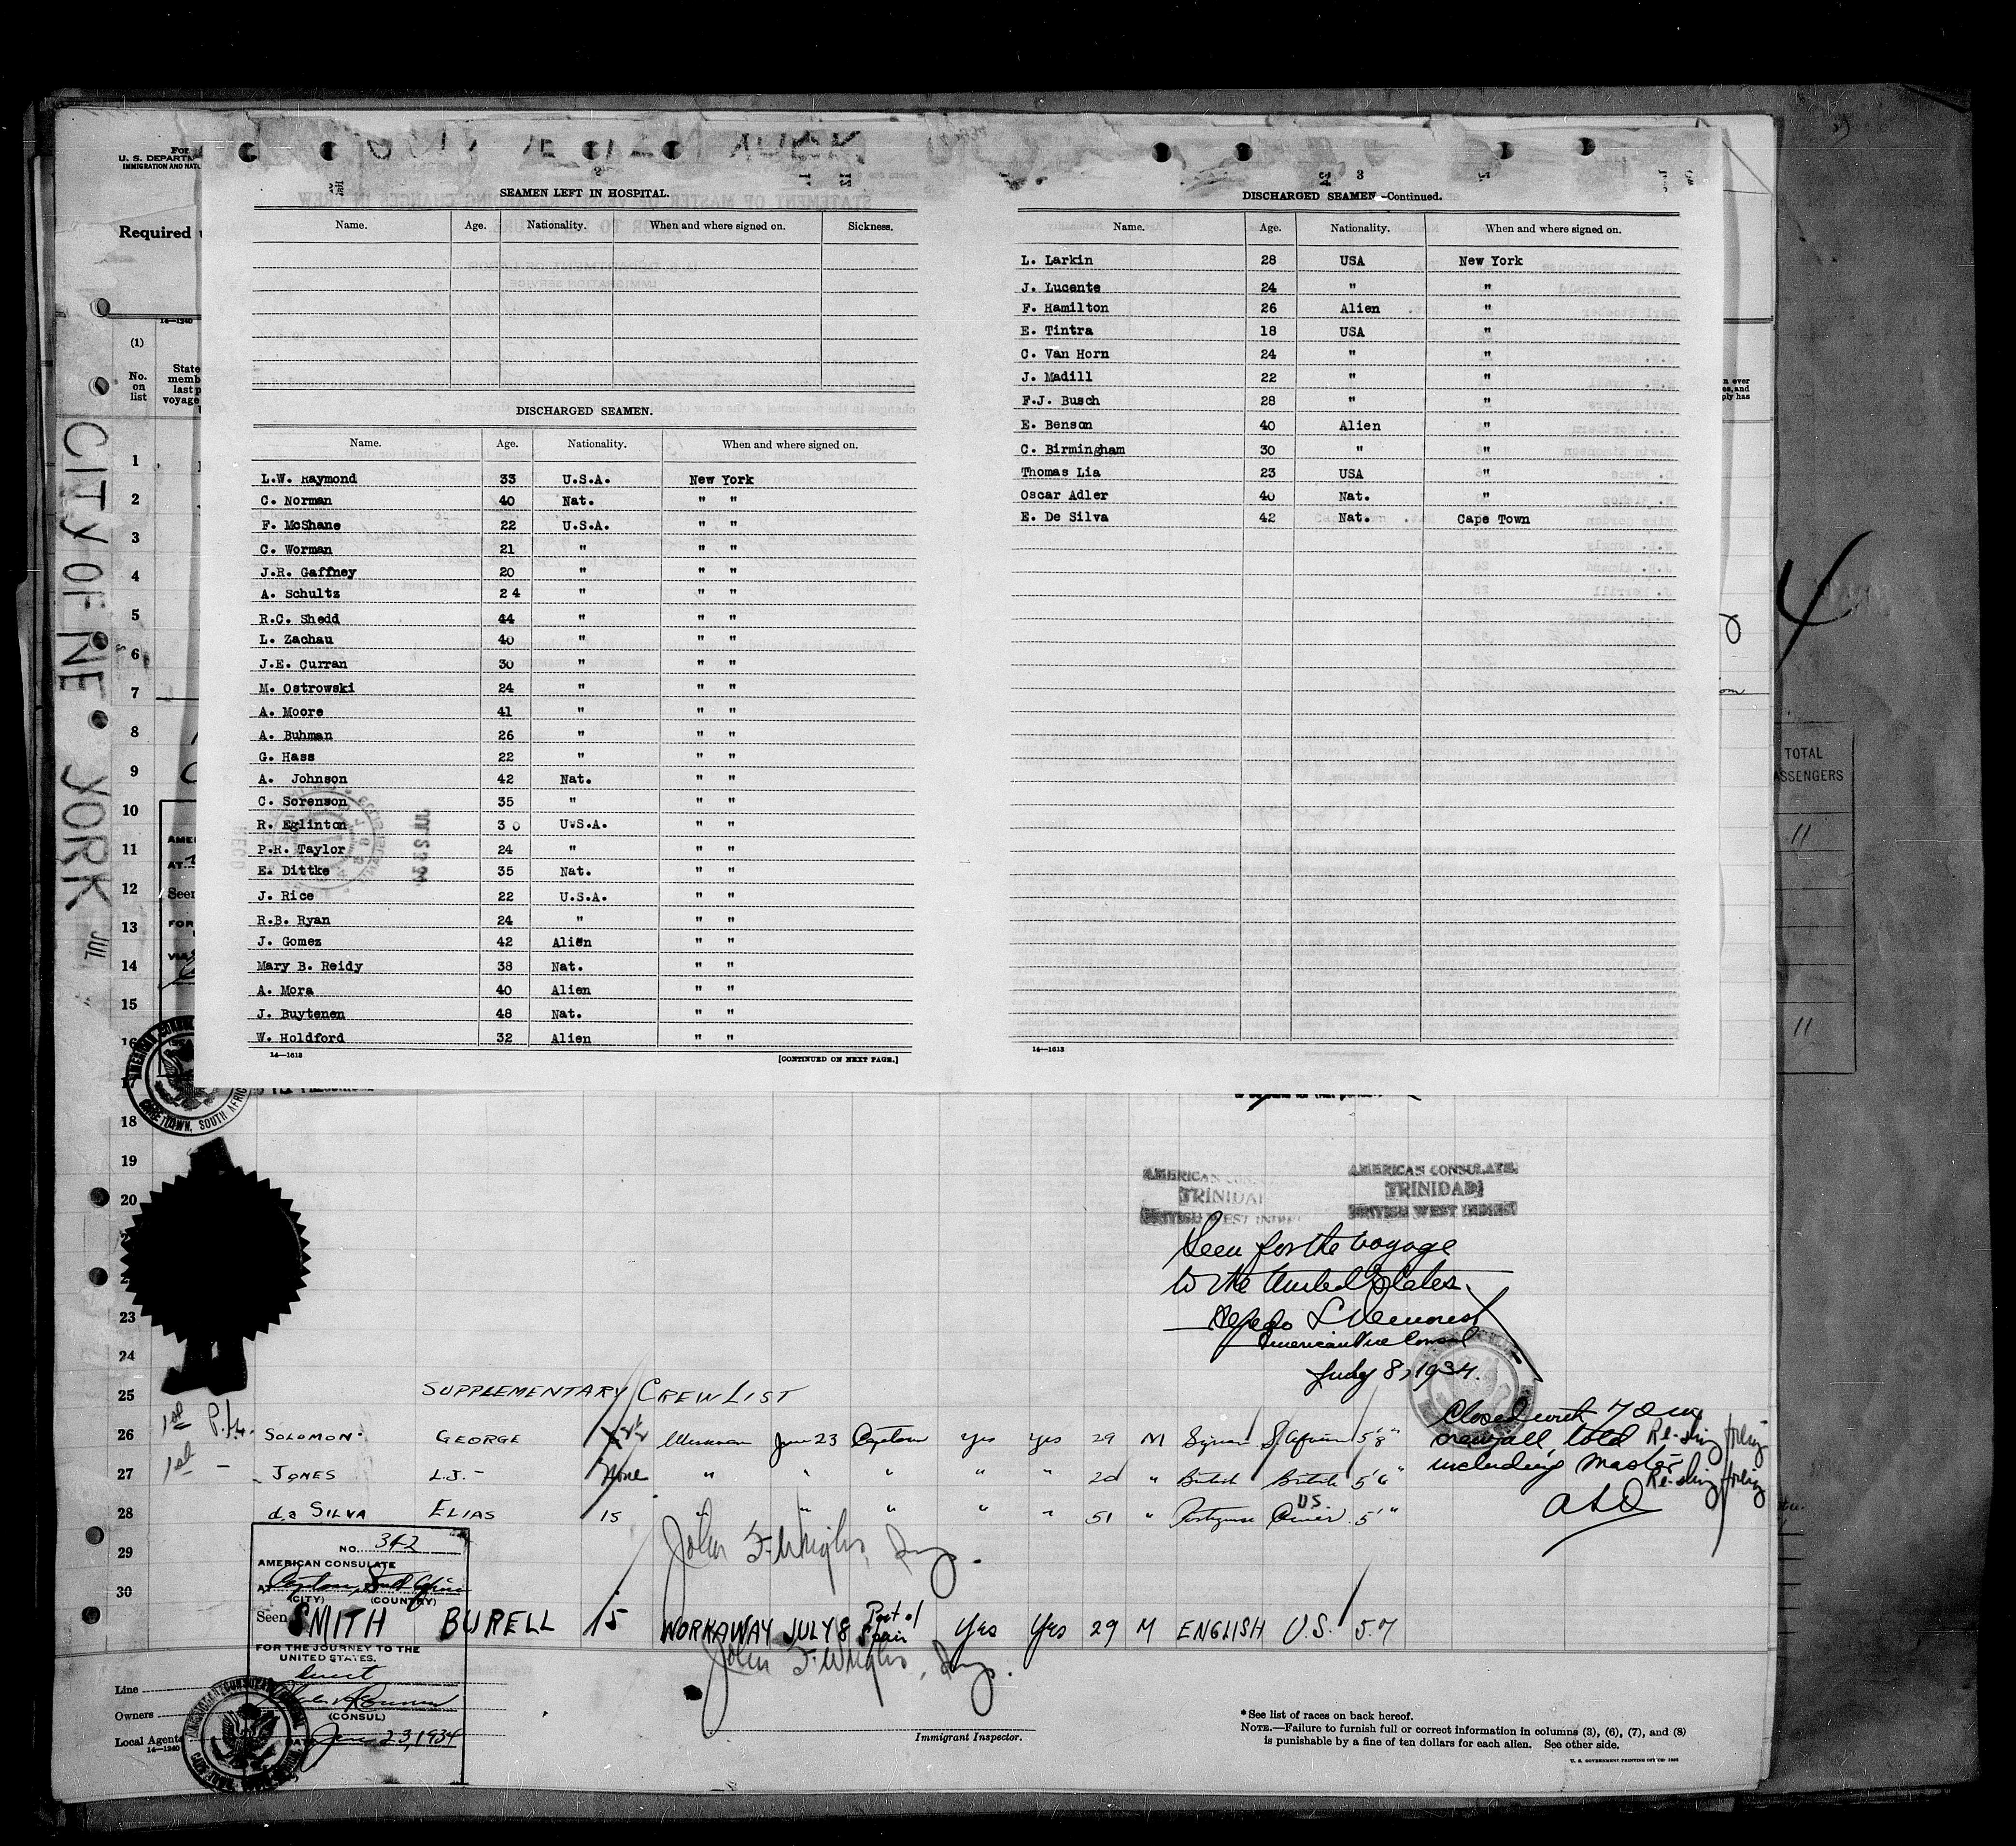 For
U. S. DEPARTM
IMMIGRATION AND NAT
Required
14—1240
(1)
No.
on
list
State
memb
last p
voyage
CITY OF NE YORK
JUL
SEAMEN LEFT IN HOSPITAL.
Name. Age. Nationality. When and where signed on. Sickness.
DISCHARGED SEAMEN.
Name. Age. Nationality. When and where signed on.
L.W. Raymond 33 U.S.A. New York
C. Norman 40 Nat. " "
F. McShane 22 U.S.A. " "
C. Worman 21 " " "
J.R. Gaffney 20 " " "
A. Schultz 24 " " "
R.C. Shedd 44 " " "
L. Zachau 40 " " "
J.E. Curran 30 " " "
M. Ostrowski 24 " " "
A. Moore 41 " " "
A. Buhman 26 " " "
G. Hass 22 " " "
A. Johnson 42 Nat. " "
C. Sorenson 35 " " "
R. Eglinton 30 U.S.A. " "
P.R. Taylor 24 " " "
E. Dittke 35 Nat. " "
J. Rice 22 U.S.A. " "
R.B. Ryan 24 " " "
J. Gomez 42 Alien " "
Mary B. Reidy 38 Nat. " "
A. Mora 40 Alien " "
J. Buytenen 48 Nat. " "
W. Holdford 32 Alien " "
14—1613 [CONTINUED ON NEXT PAGE.]
3
DISCHARGED SEAMEN—Continued.
Name. Age. Nationality. When and where signed on.
L. Larkin 28 USA New York
J. Lucente 24 " "
F. Hamilton 26 Alien "
E. Tintra 18 USA "
C. Van Horn 24 " "
J. Madill 22 " "
F.J. Busch 28 " "
E. Benson 40 Alien "
C. Birmingham 30 " "
Thomas Lia 23 USA "
Oscar Adler 40 Nat. "
E. De Silva 42 Nat. Cape Town
14—1613
4
TOTAL
ASSENGERS
11
11
1
2
3
4
5
6
7
8
9
10
11
12
13
14
15
16
18
19
20
23
24
AMERICAN CONSULATE
TRINIDAD
BRITISH WEST INDIES
AMERICAN CONSULATE
TRINIDAD
BRITISH WEST INDIES
Seen for the voyage
to the United States
American Vice Consul
July 8, 1934.
25 SUPPLEMENTARY CREW LIST
26 SOLOMON GEORGE Workman June 23 Capetown Yes Yes 29 M Syrian S. African 5'8"
27 JONES L.J. None " " " " " 20 " British British 5'6"
28 da SILVA ELIAS 15 " " " " " 51 " Portuguese U.S. 5'"
Closed with 72 in
crew all told
including Master
29
30
John F. Wright, Insp.
NO. 342
AMERICAN CONSULATE
AT Capetown, South Africa
(CITY) (COUNTRY)
Seen
FOR THE JOURNEY TO THE
UNITED STATES.
(CONSUL)
June 23, 1934
SMITH BURELL 15 WORKAWAY JULY 8 Port of Spain Yes Yes 29 M ENGLISH U.S. 5.7
John F. Wright, Insp.
Line
Owners
Local Agents
14—1240
Immigrant Inspector.
* See list of races on back hereof.
NOTE.—Failure to furnish full or correct information in columns (3), (6), (7), and (8)
is punishable by a fine of ten dollars for each alien. See other side.